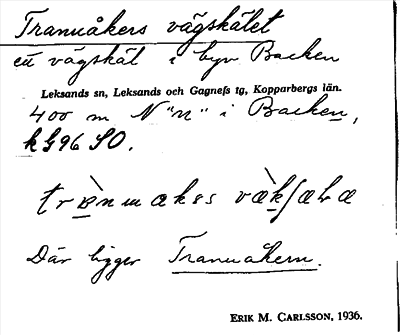 Tranuåkers vägskälet
ett vägskäl i byn Backen
Leksands sn, Leksands och Gagnefs tg, Kopparbergs län.
400 m N "n" i Backen,
k 596 SO.
Där ligger Tranuåkern.
ERIK M. CARLSSON, 1936.